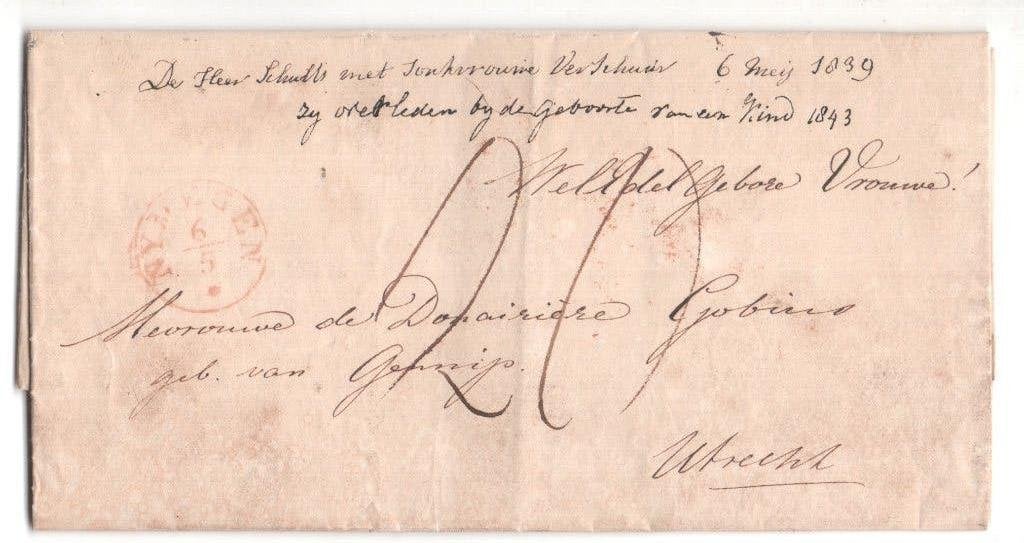 De Heer Schults met Jonkvrouwe VerSchuir 6 Meij 1839
zy overleden by de geboorte van een Kind 1843
WelEdelgebore Vrouwe!
NYMEGEN
6
5
Mevrouwe de Douairière Gobius
geb. van Gennip.
Utrecht